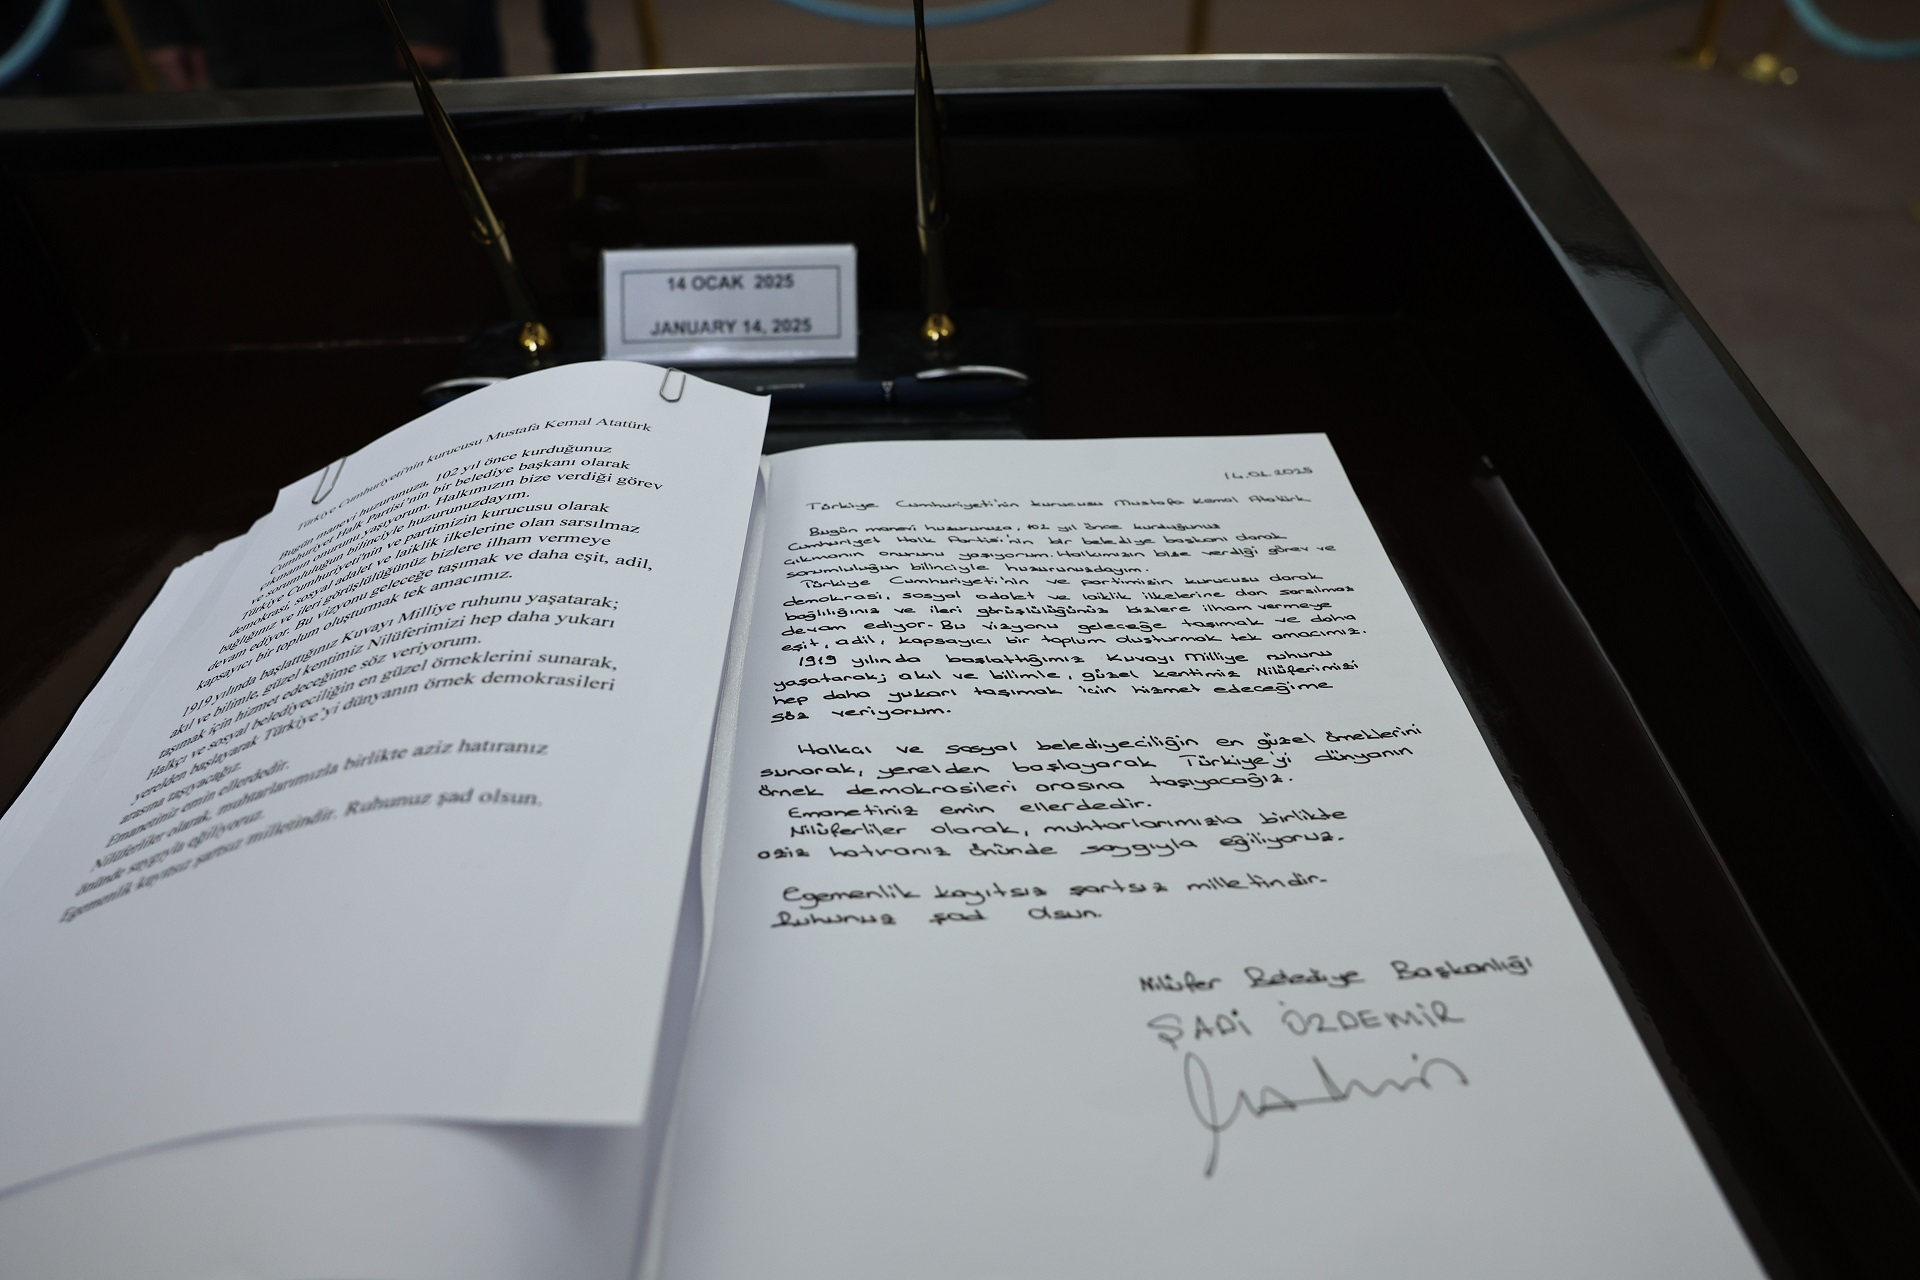 14 OCAK 2025
JANUARY 14, 2025
Türkiye Cumhuriyeti'nin kurucusu Mustafa Kemal Atatürk
Bugün manevi huzurunuza, 102 yıl önce kurduğunuz
Cumhuriyet Halk Partisi'nin bir belediye başkanı olarak
çıkmanın onurunu yaşıyorum. Halkımızın bize verdiği görev
ve sorumluluğun bilinciyle huzurunuzdayım.
Türkiye Cumhuriyeti'nin ve partimizin kurucusu olarak
demokrasi, sosyal adalet ve laiklik ilkelerine olan sarsılmaz
bağlılığınız ve ileri görüşlülüğünüz bizlere ilham vermeye
devam ediyor. Bu vizyonu geleceğe taşımak ve daha eşit, adil,
kapsayıcı bir toplum oluşturmak tek amacımız.
1919 yılında başlattığınız Kuvayı Milliye ruhunu yaşatarak;
akıl ve bilimle, güzel kentimiz Nilüferimizi hep daha yukarı
taşımak için hizmet edeceğime söz veriyorum.
Halkçı ve sosyal belediyeciliğin en güzel örneklerini sunarak,
yerelden başlayarak Türkiye'yi dünyanın örnek demokrasileri
arasına taşıyacağız.
Emanetiniz emin ellerdedir.
Nilüferliler olarak, muhtarlarımızla birlikte aziz hatıranız
önünde saygıyla eğiliyoruz.
Egemenlik kayıtsız şartsız milletindir. Ruhunuz şad olsun.
14.01.2025
Türkiye Cumhuriyeti'nin kurucusu Mustafa Kemal Atatürk
Bugün manevi huzurunuza, 102 yıl önce kurduğunuz
Cumhuriyet Halk Partisi'nin bir belediye başkanı olarak
çıkmanın onurunu yaşıyorum. Halkımızın bize verdiği görev ve
sorumluluğun bilinciyle huzurunuzdayım.
Türkiye Cumhuriyeti'nin ve partimizin kurucusu olarak
demokrasi, sosyal adalet ve laiklik ilkelerine olan sarsılmaz
bağlılığınız ve ileri görüşlülüğünüz bizlere ilham vermeye
devam ediyor. Bu vizyonu geleceğe taşımak ve daha
eşit, adil, kapsayıcı bir toplum oluşturmak tek amacımız.
1919 yılında başlattığımız Kuvayı Milliye ruhunu
yaşatarak; akıl ve bilimle, güzel kentimiz Nilüferimizi
hep daha yukarı taşımak için hizmet edeceğime
söz veriyorum.
Halkçı ve sosyal belediyeciliğin en güzel örneklerini
sunarak, yerelden başlayarak Türkiye'yi dünyanın
örnek demokrasileri arasına taşıyacağız.
Emanetiniz emin ellerdedir.
Nilüferliler olarak, muhtarlarımızla birlikte
aziz hatıranız önünde saygıyla eğiliyoruz.
Egemenlik kayıtsız şartsız milletindir.
Ruhunuz şad olsun.
Nilüfer Belediye Başkanlığı
ŞADİ ÖZDEMİR